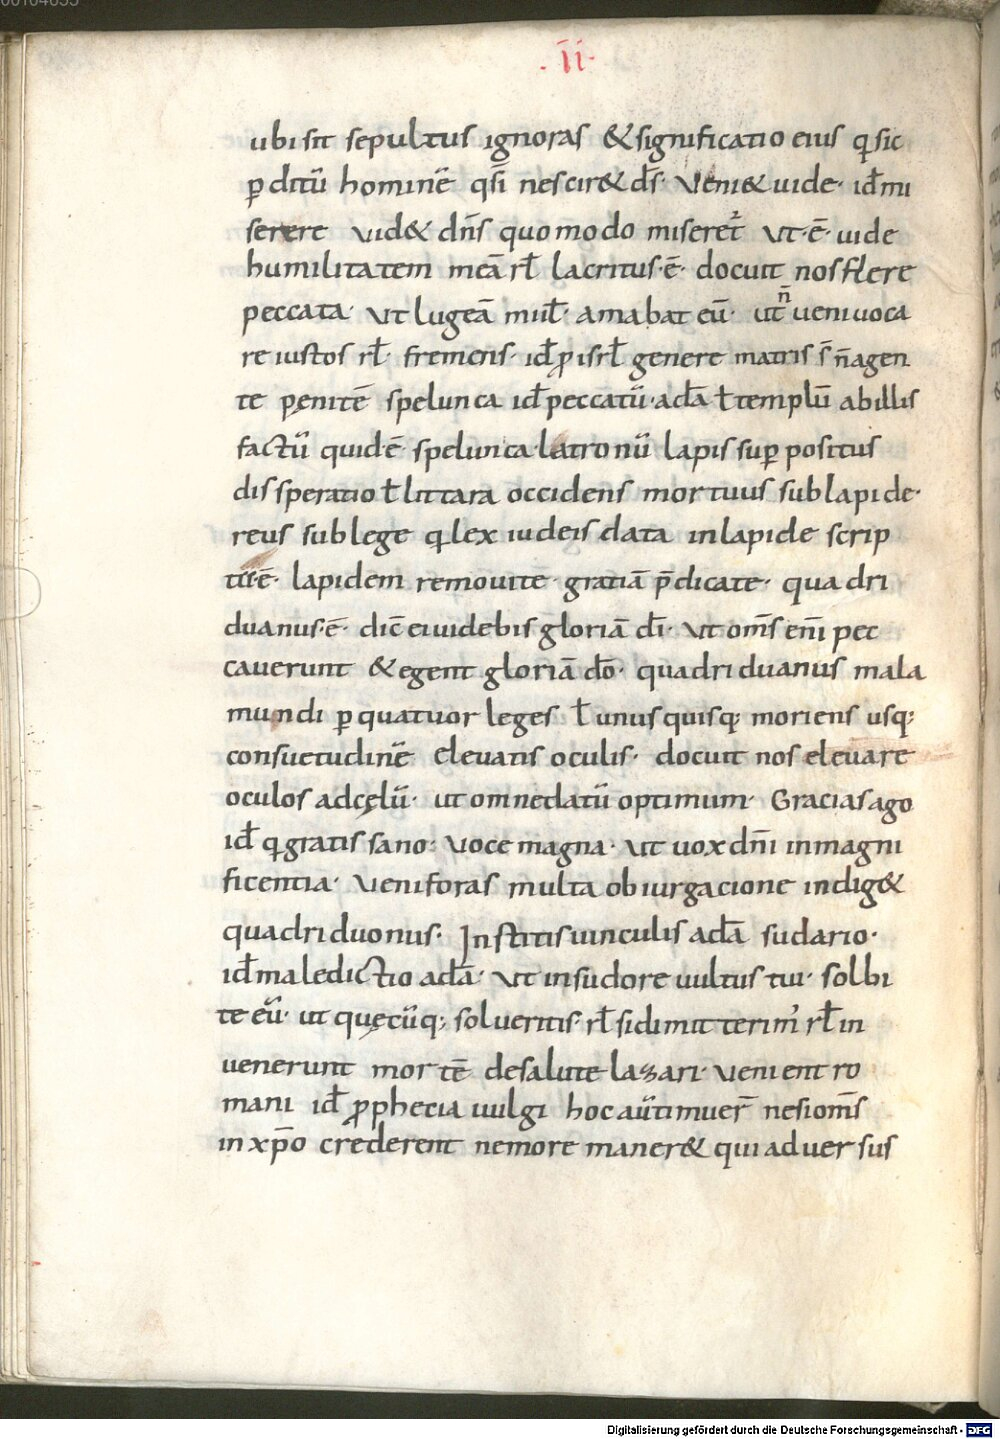 .II.
ubi sit sepultus ignoras & significatio eius q; sic
p̱ditū hominē qsī nescir& dr̄s. Veni & uide. id̄ mi
serere vid& dn̄s quomodo miseret᷑ vt·ē· uide
humilitatem meā rł lacritus·ē· docuit nos flere
peccata· vt lugeā miił· amabat eū· ut n̄ ueni uoca
re iustos rł· fremens· id̄ p̱ isrł genere matris s̄ n̄ agen
te pęnitē spelunca id̄ peccatū· adā ł templū ab illis
factū quidē· spelunca latronū lapis sup̱ positus
dissperatio ł littara occidens mortuus sub lapide·
reus sub lege q; lex iudeis data in lapide scrip
ta·ē· lapidem remouite gratiā p̄dicate· quadri
duanus·ē· dic̄ ei uidebis gloriā dī· vt om̄s en̄i pec
cauerunt & egent gloriā dō· quadriduanus mala
mundi p̱ quatuor leges ł unusquisq; moriens usq;
consuetudinē eleuatis oculis· docuit nos eleuare
oculos ad cęlū· ut omne datū optimum· Gracias ago
id̄ q; gratis sano: voce magna· vt uox dn̄i in magni
ficentia· veni foras multa obiurgacione indig&
quadriduonus· Institis uinculis adā sudario·
id̄ maledictio adā· vt in sudore uultus tui· solbi
te eū· ut quęcūq; solueritis· rł sidimit terim̄ rł in
uenerunt mortē de salute lazari· venient ro
mani id̄ p̱phecia uulgi hoc aūt timuer̄ nesi om̄s
in xp̄o crederent nemo remaner& qui aduersus
Digitalisierung gefördert durch die Deutsche Forschungsgemeinschaft - DFG